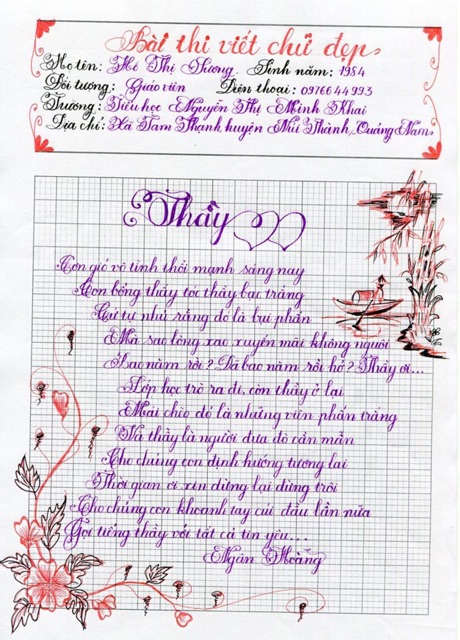 Bài thi viết chữ đẹp
Họ tên: Hồ Thị Sương Sinh năm: 1984
Đối tượng: Giáo viên Điện thoại: 0976644993
Trường: Tiểu học Nguyễn Thị Minh Khai
Địa chỉ: Xã Tam Thạnh, huyện Núi Thành, Quảng Nam
Thầy
Cơn gió vô tình thổi mạnh sáng nay
Con bỗng thấy tóc thầy bạc trắng
Cứ tự nhủ rằng đó là bụi phấn
Mà sao lòng xao xuyến mãi không nguôi
Bao năm rồi? Đã bao năm rồi hở? Thầy ơi...
Lớp học trò ra đi, còn thầy ở lại
Mái chèo đó là những viên phấn trắng
Và thầy là người đưa đò cần mẫn
Cho chúng con định hướng tương lai
Thời gian ơi xin dừng lại đừng trôi
Cho chúng con khoanh tay cúi đầu lần nữa
Gọi tiếng thầy với tất cả tin yêu...
Ngân Hoàng